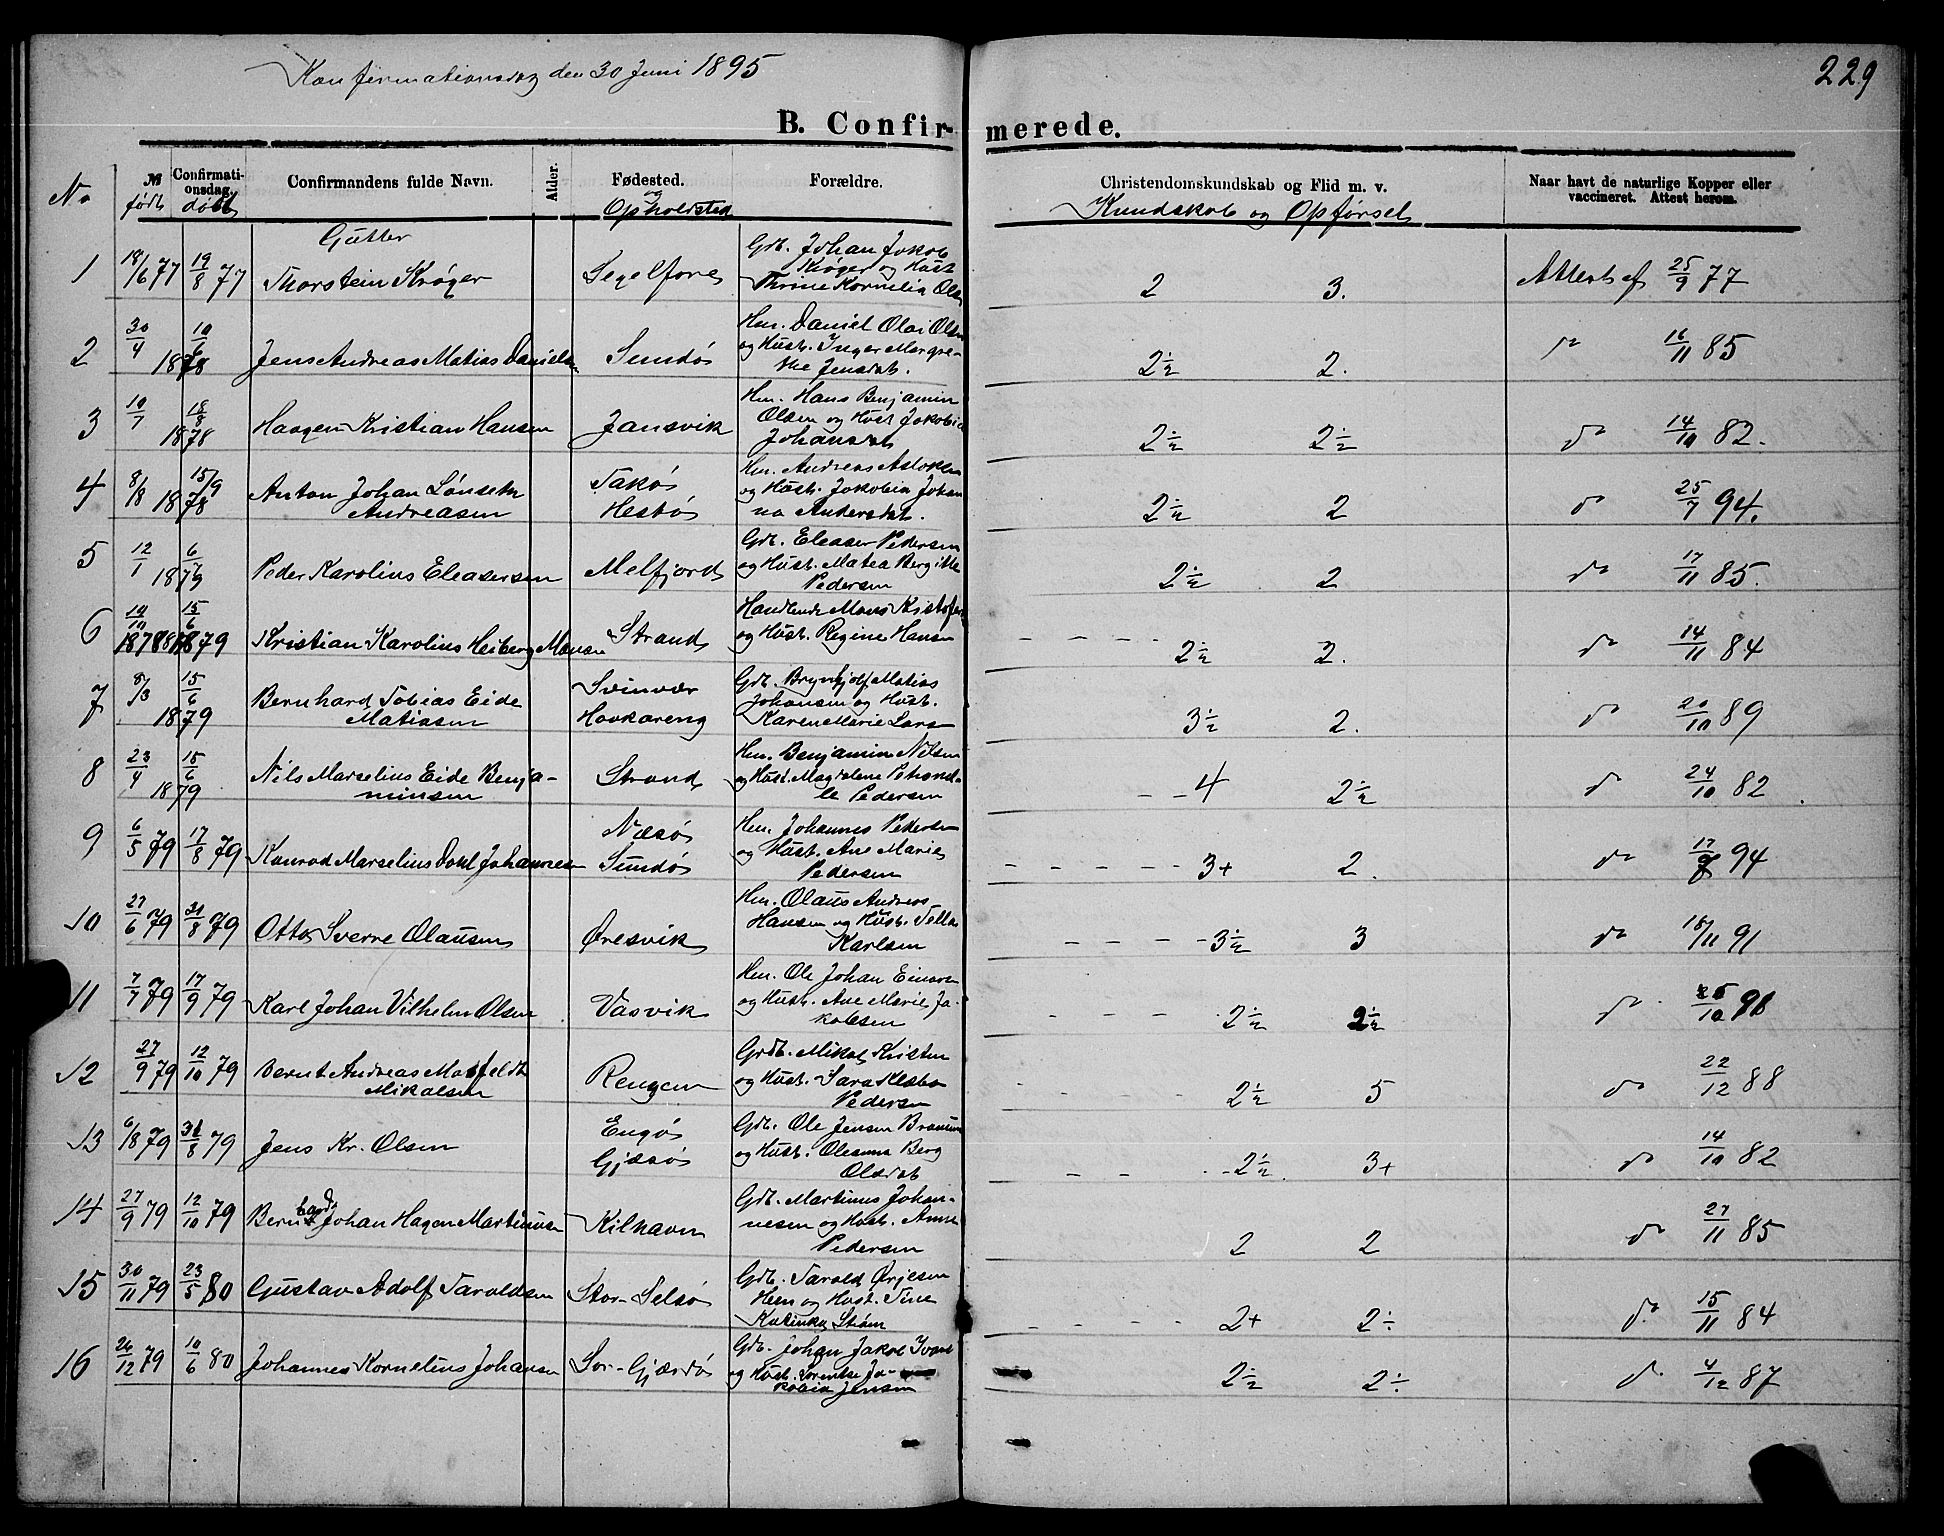 Konfirmationsdag den 30 Juni 1895
229
B. Confirmerede.
No M født Confirmationsdag. døbt Confirmandens fulde Navn. Alder. Fødested. og Opholdsted Forældre. Christendomskundskab og Flid m. v. Kundskab og Opførsel Naar havt de naturlige Kopper eller vaccineret. Attest herom.
Gutter
1 18/6 77 19/8 77 Thorstein Krøger Segelfore Gdb. Johan Jakob Krøger og Hust Thrine Kornelia Ols 2 3. Attest af 25/9 77
2 30/4 10/6 1878 Jens Andreas Matias Daniels Sundø Hm. Daniel Olai Olsen og Hust. Inger Margrethe Jensdat. 2½ 2. do 16/11 85
3 10/7 18/8 1878 Haagen Kristian Hansen Jansvik Hm. Hans Benjamin Olsen og Hust Jakobia Johansdat 2½ 2½ do 14/10 82.
4 8/8 15/9 1878 Anton Johan Lønseth Andreasen Takø Hestø Hm. Andreas Aslaksen og Hust. Jakobia Johanna Andersdat. 2½ 2 do 25/7 94.
5 12/1 6/7 1879 Peder Karolius Eleasersen Melfjord Gdb. Eleaser Pedersen og Hust. Matea Bergitte Pedersen 2½ 2 do 17/11 85.
6 14/10 1878 15/6 1879 Kristian Karolius Heiberg Monsen Strand Handlende Mons Kristofer og Hust. Regine Hansen 2½ 2. do 14/11 84
7 8/3 15/6 1879 Bernhard Tobias Eide Matiasen Svinvær Haakareng Gdb. Brynhjolf Matias Johansen og Hust. Karen Marie Lars 3½ 2. do 20/10 89
8 23/4 15/6 1879 Nils Marselius Eide Benjaminsen Strand Hm. Benjamin Nilsen og Hust. Magdalene Petronelle Pedersen 4 2½ do 24/10 82
9 6/5 79 17/8 79 Konrad Marselius Dahl Johannesen Næsø Sundø Hm. Johannes Pedersen og Hust. Ane Marie Pedersen 3+ 2. do 17/7 94
10 27/6 79 31/8 79 Otto Sverre Olausen Øresvik Hm. Olaus Andreas Hansen og Hust. Karlsen 3½ 3 do 18/11 91
11 7/7 79 17/9 79 Karl Johan Vilhelm Olsen Vasvik Hm. Ole Johan Einars og Hust. Ane Marie Jakobsen 2½ 2½ do
12 27/9 79 12/10 79 Bernt Andreas Mosfeldt Mikalsen Rengen Grdb. Mikal Kristen og Hust. Sara Pedersen 2½ 5 do 22/12 88
13 6/8 79 31/8 79 Jens Kr. Olsen Engø Gjæsø Gdb. Ole Jensen og Hust. Olesma Berg Olsdat 2½ 3+ do 14/10 82
14 27/9 79 12/10 79 Bernhard Johan Hagen Martinusen Kilhavn Gdb. Martinus Johannesen og Hust. Anne Pedersen 2 2 do 27/11 85
15 30/11 79 23/5 80 Gustav Adolf Taroldsen Stor-Selsø Gdb. Tarold Ørjesen og Hust. Tine Katinka Strøm 2+ 2÷ do 15/11 84
16 26/12 79 10/6 80 Johannes Kornelius Johansen Sor-Gjærdø Gdb. Johan Jakob Ivars og Hust. Lorentse Jakobia Jensen 2½ 2÷ do 4/12 87